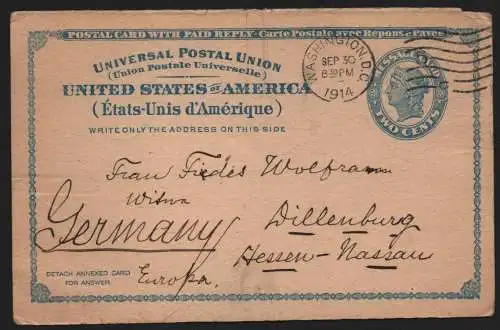 POSTAL CARD WITH PAID REPLY.-Carte Postale avec Réponse Payée
UNIVERSAL POSTAL UNION
(Union Postale Universelle)
UNITED STATES OF AMERICA
(États-Unis d'Amérique)
WRITE ONLY THE ADDRESS ON THIS SIDE
WASHINGTON, D.C.
SEP 30
1914
TWO CENTS
Frau Wolfram
Witwe
Dillenburg
Germany
Hessen-Nassau
DETACH ANNEXED CARD
FOR ANSWER.
Europa.